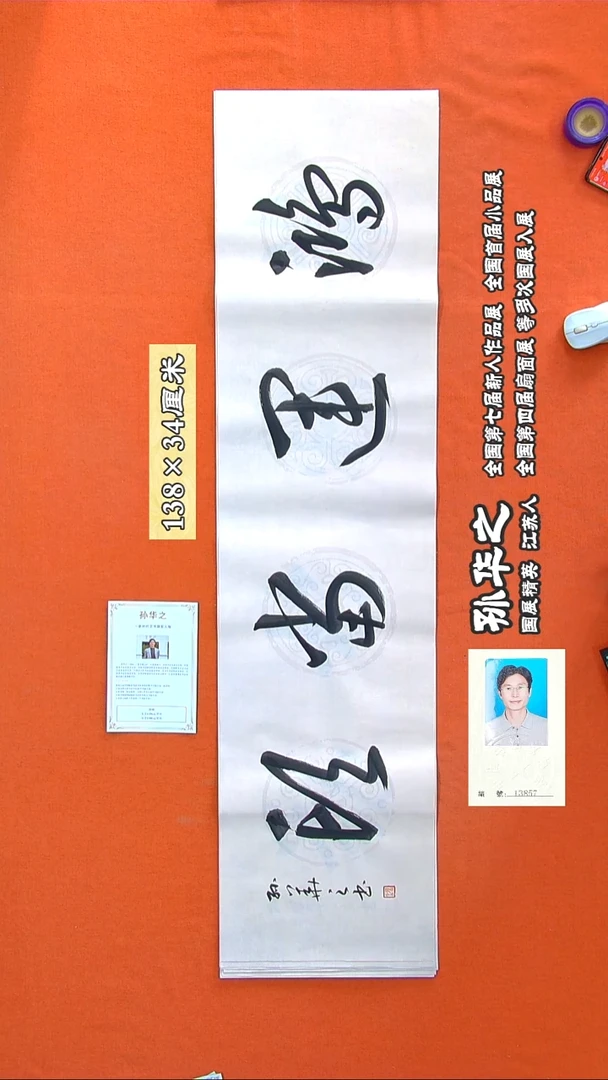 138×34厘米
鴻運當頭
孙华之书
孙华之
孙华之
国展精英 江苏人
全国第七届新人作品展 全国首届小品展
全国第四届扇面展 等多次国展入展
編 號: 13857